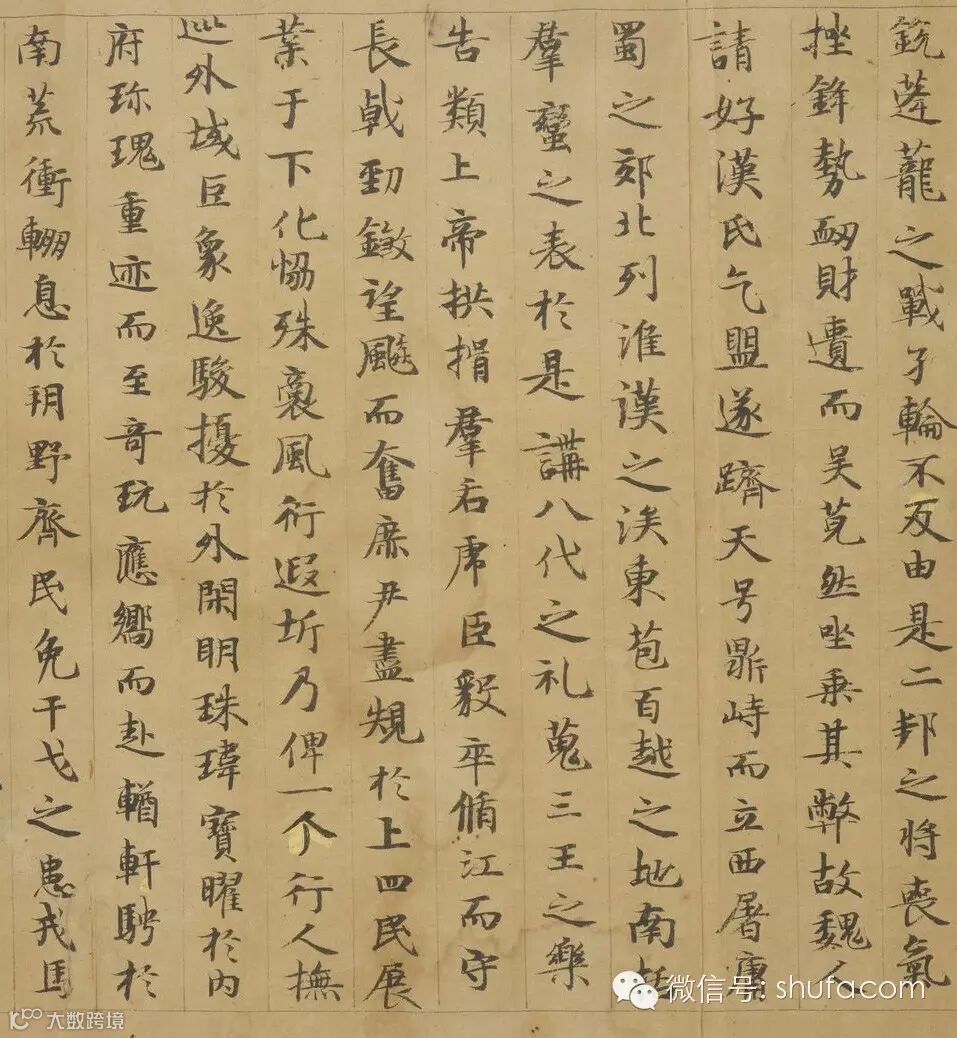 銳蓬蘢之戰孑輪不反由是二邦之將喪氣
挫鋒勢衂財遺而吴莧然坐乗其弊故魏人
請好漢氏乞盟遂躋天号鼎峙而立西屠庸
蜀之郊北列淮漢之涘東苞百越之地南括
羣蠻之表於是講八代之礼蒐三王之樂
告類上帝拱揖羣后虎臣毅卒循江而守
長戟勁鎩望飈而奮庶尹盡䂓於上四民展
業于下化恊殊裔風衍遐圻乃俾一个行人撫
巡外域巨象逸駿擾於外閑明珠瑋寶曜於内
府珎瑰重迹而至奇玩應嚮而赴輶軒騁於
南荒衝輣息於朔野齊民免干戈之患戎馬
微信号: shufacom
10100 大数跨境